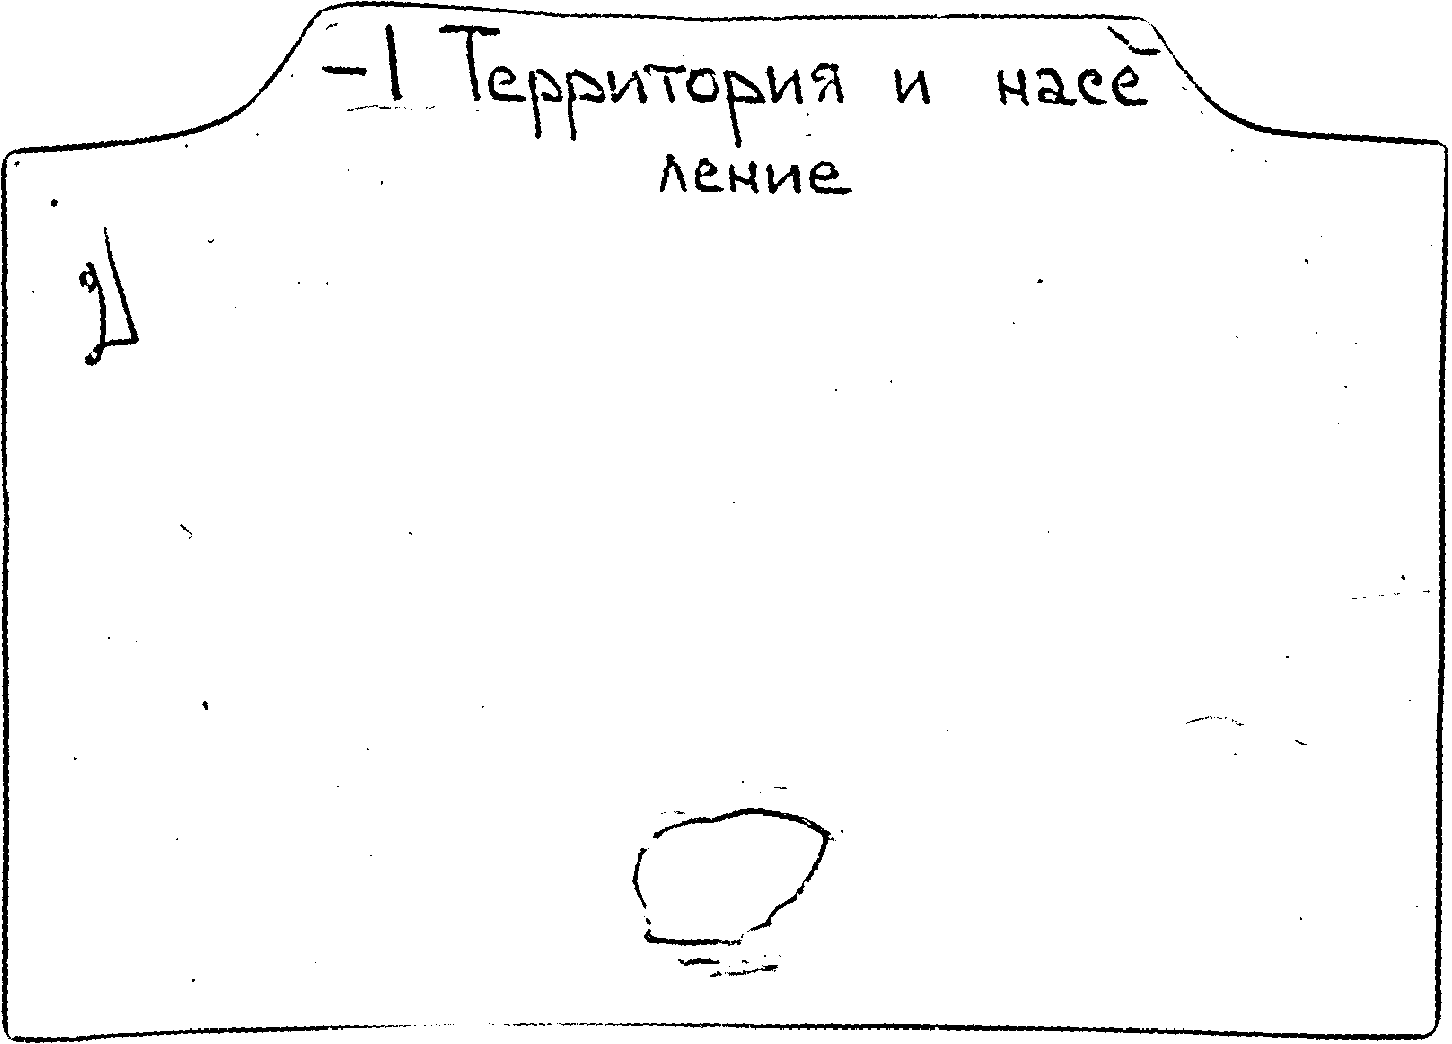 -1 Территория и насе-
ление